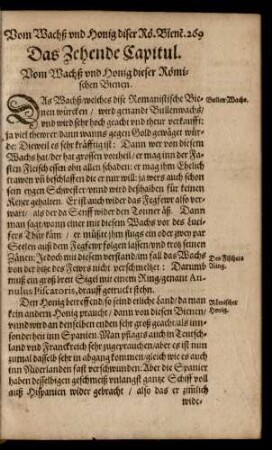 Vom Wachß vnd Honig diser Rö. Bienē. 269
Das Zehende Capitul.
Vom Wachß vnd Honig dieser Römi-
schen Bienen.
DAs Wachß/welches dise Romanistische Bie-
nen würcken / wird genandt Bullenwachs/
vnd wird sehr hoch geacht vnd thewr verkaufft:
ja viel thewrer dann wanns gegen Gold gewäget wür-
de: Dieweil es sehr kräfftig ist: Dann wer von diesem
Wachs hat/der hat grossen vortheil/er mag inn der Fa-
sten Fleisch essen ohn allen schaden: er mag ihm Ehelich
trawen vñ beschlaffen die er nur will: ja wers auch schon
sein eygen Schwester/vnnd wird deßhalben für keinen
Keyer gehalten. Er ist auch wider das Fegfewr also ver-
wart/ als der da Senff wider den Donner äß. Dann
man sagt/wann einer mit diesem Wachs vor des Luci-
fers Thür kám / er müßt jhm flugs ein oder zwey par
Seelen auß dem Fegfewr folgen lassen/vnd trotz seinen
Zänen: Jedoch mit diesem verstand/im fall das Wachs
von der hitz des Fewrs nicht verschmeltzt: Darumb
muß ein groß breit Sigel mit einem Ring/genant An-
nulus Piscatoris, drauff getruckt stehn.
Den Honig betreffend/so seind etliche Land/da man
kein andern Honig praucht/dann von diesen Bienen/
vnnd wird an denselben enden sehr groß geacht: als inn-
sonderheit inn Spanien. Man pflags auch in Teutsch-
land vnd Franckreich sehr zugeprauchen/aber es ist nun
zumal dasselb sehr in abgang kommen/gleich wie es auch
inn Niderlanden fast verschwunden: Aber die Spanier
haben desselbigen geschmeiß vnlangst gantze Schiff voll
auß Hispanien wider gebracht / also das er zimlich
wide-
Bullen Wachs.
Des Fischers
Ring.
Römischer
Honig.